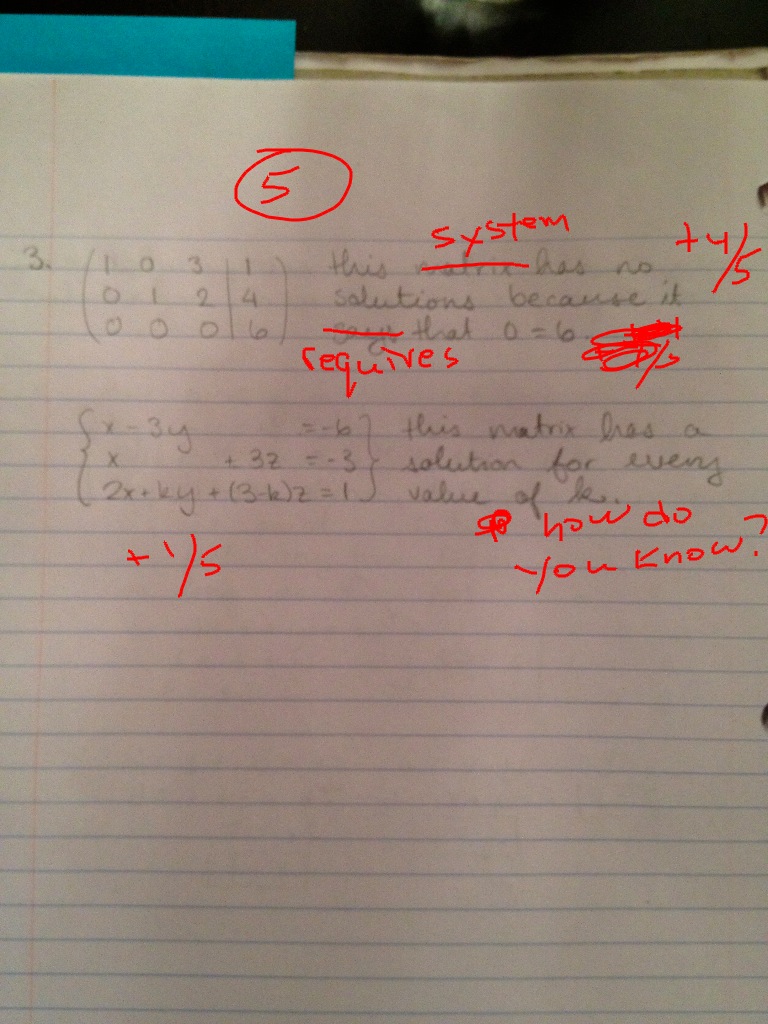 5
system
+4/5
3. (1 0 3 | 1) this matrix has no
0 1 2 | 4 solutions because it
0 0 0 | 6 says that 0 = 6.
requires
/5
{x - 3y = -6} this matrix has a
x + 3z = -3 solution for every
2x + ky + (3-k)z = 1 value of k.
how do
+1/5
you know?